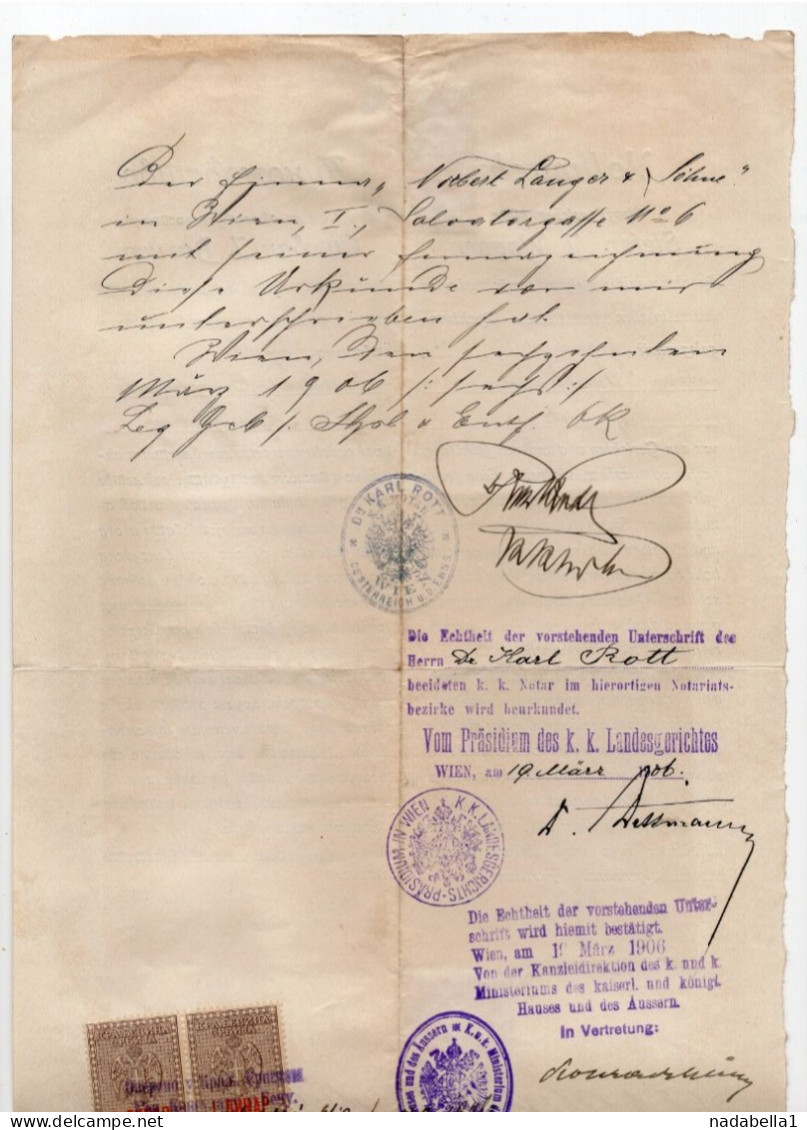 Der Firma „Norbert Langer & Söhne"
in Wien, I., Salvatorgasse No 6
mit seiner Firmazeichnung
diese Urkunde vor mir
unterschrieben hat.
Wien, den sechzehnten
März 1906 /: sechs :/
Leg Geb
DR KARL ROTT
WIEN
OESTERREICH U.D. ENNS
Die Echtheit der vorstehenden Unterschrift des
Herrn Dr. Karl Rott
beeideten k. k. Notar im hierortigen Notariats-
bezirke wird beurkundet.
Vom Präsidium des k. k. Landesgerichtes
WIEN, am 19 März 906.
K.K. LANDESGERICHTS-PRÄSIDIUM IN WIEN
Die Echtheit der vorstehenden Unter-
schrift wird hiemit bestätigt.
Wien, am 19 März 1906
Von der Kanzleidirektion des k. und k.
Ministeriums des kaiserl. und königl.
Hauses und des Äussern.
In Vertretung:
K.u.k. Ministerium des
und des Äussern
nadabella1